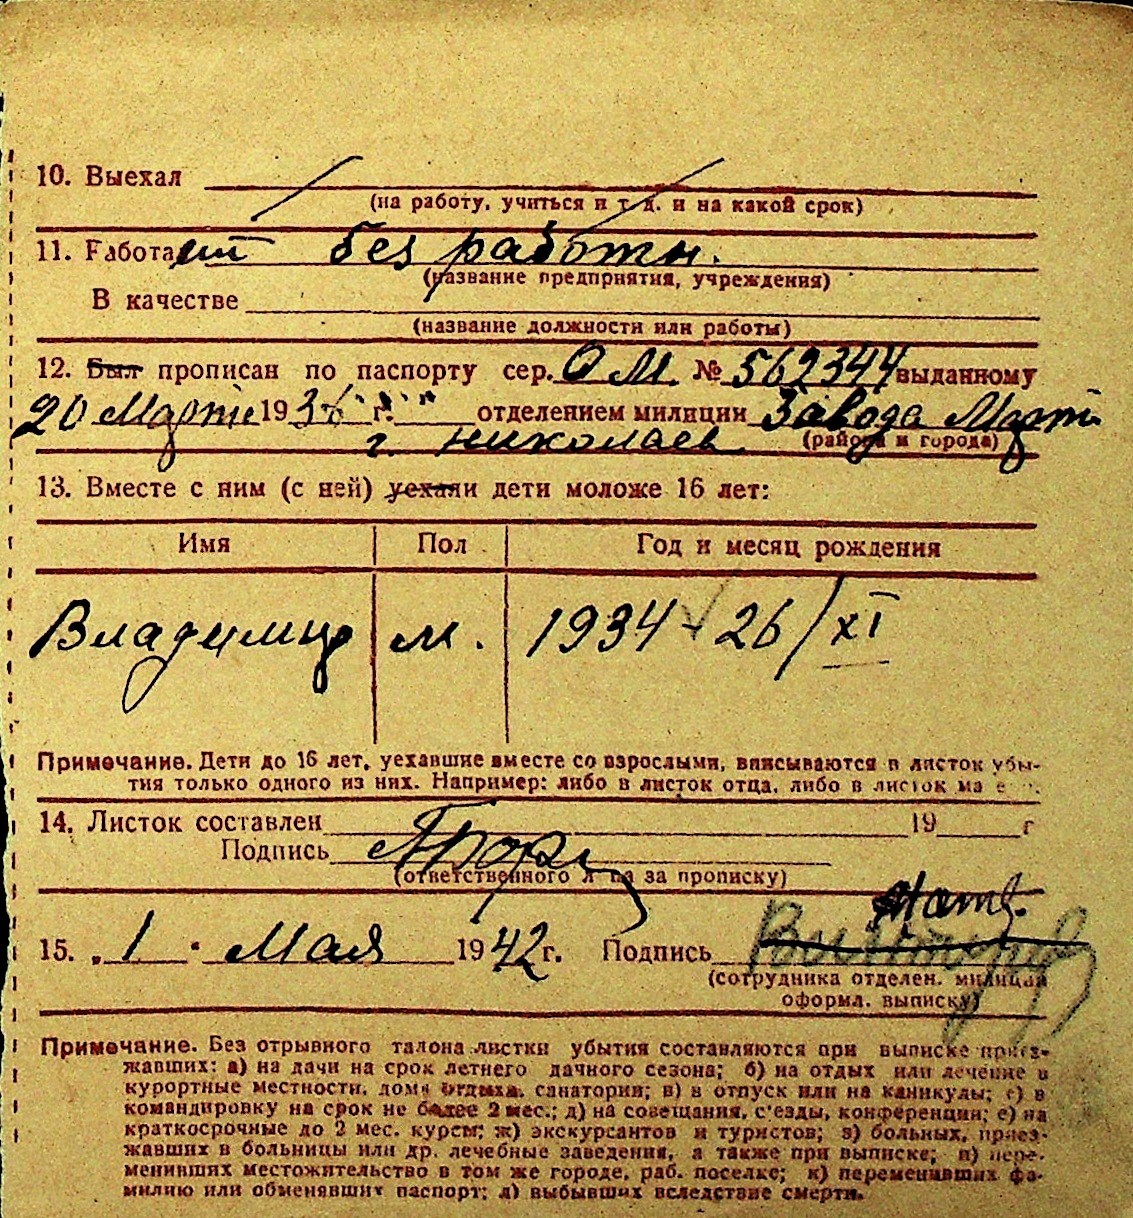 10. Выехал
(на работу, учиться и т. д. и на какой срок)
11. Работает без работы.
(название предприятия, учреждения)
В качестве
(название должности или работы)
12. Был прописан по паспорту сер. О М. № 562344 выданному
20 Марта 1936 г. " " отделением милиции Завода Марти
г. Николаев (района и города)
13. Вместе с ним (с ней) уехали дети моложе 16 лет:
Имя Пол Год и месяц рождения
Владимир м. 1934 - 26/XI
Примечание. Дети до 16 лет, уехавшие вместе со взрослыми, вписываются в листок убы-
тия только одного из них. Например: либо в листок отца, либо в листок
14. Листок составлен 19 г
Подпись
(ответственного за прописку)
15. „ 1 " Мая 1942 г. Подпись
(сотрудника отделен. милиции
оформл. выписку)
Примечание. Без отрывного талона листки убытия составляются при выписке приез-
жавших: а) на дачи на срок летнего дачного сезона; б) на отдых или лечение в
курортные местности, дома отдыха, санатории; в) в отпуск или на каникулы; г) в
командировку на срок не более 2 мес.; д) на совещания, с'езды, конференции; е) на
краткосрочные до 2 мес. курсы; ж) экскурсантов и туристов; з) больных, приез-
жавших в больницы или др. лечебные заведения, а также при выписке; и) пере-
менивших местожительство в том же городе, раб. поселке; к) переменивших фа-
милию или обменявших паспорт; л) выбывших вследствие смерти.